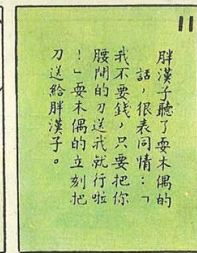 11
胖漢子聽了耍木偶的
話，很表同情：「
我不要錢，只要把你
腰間的刀送我就行啦
！」耍木偶的立刻把
刀送給胖漢子。